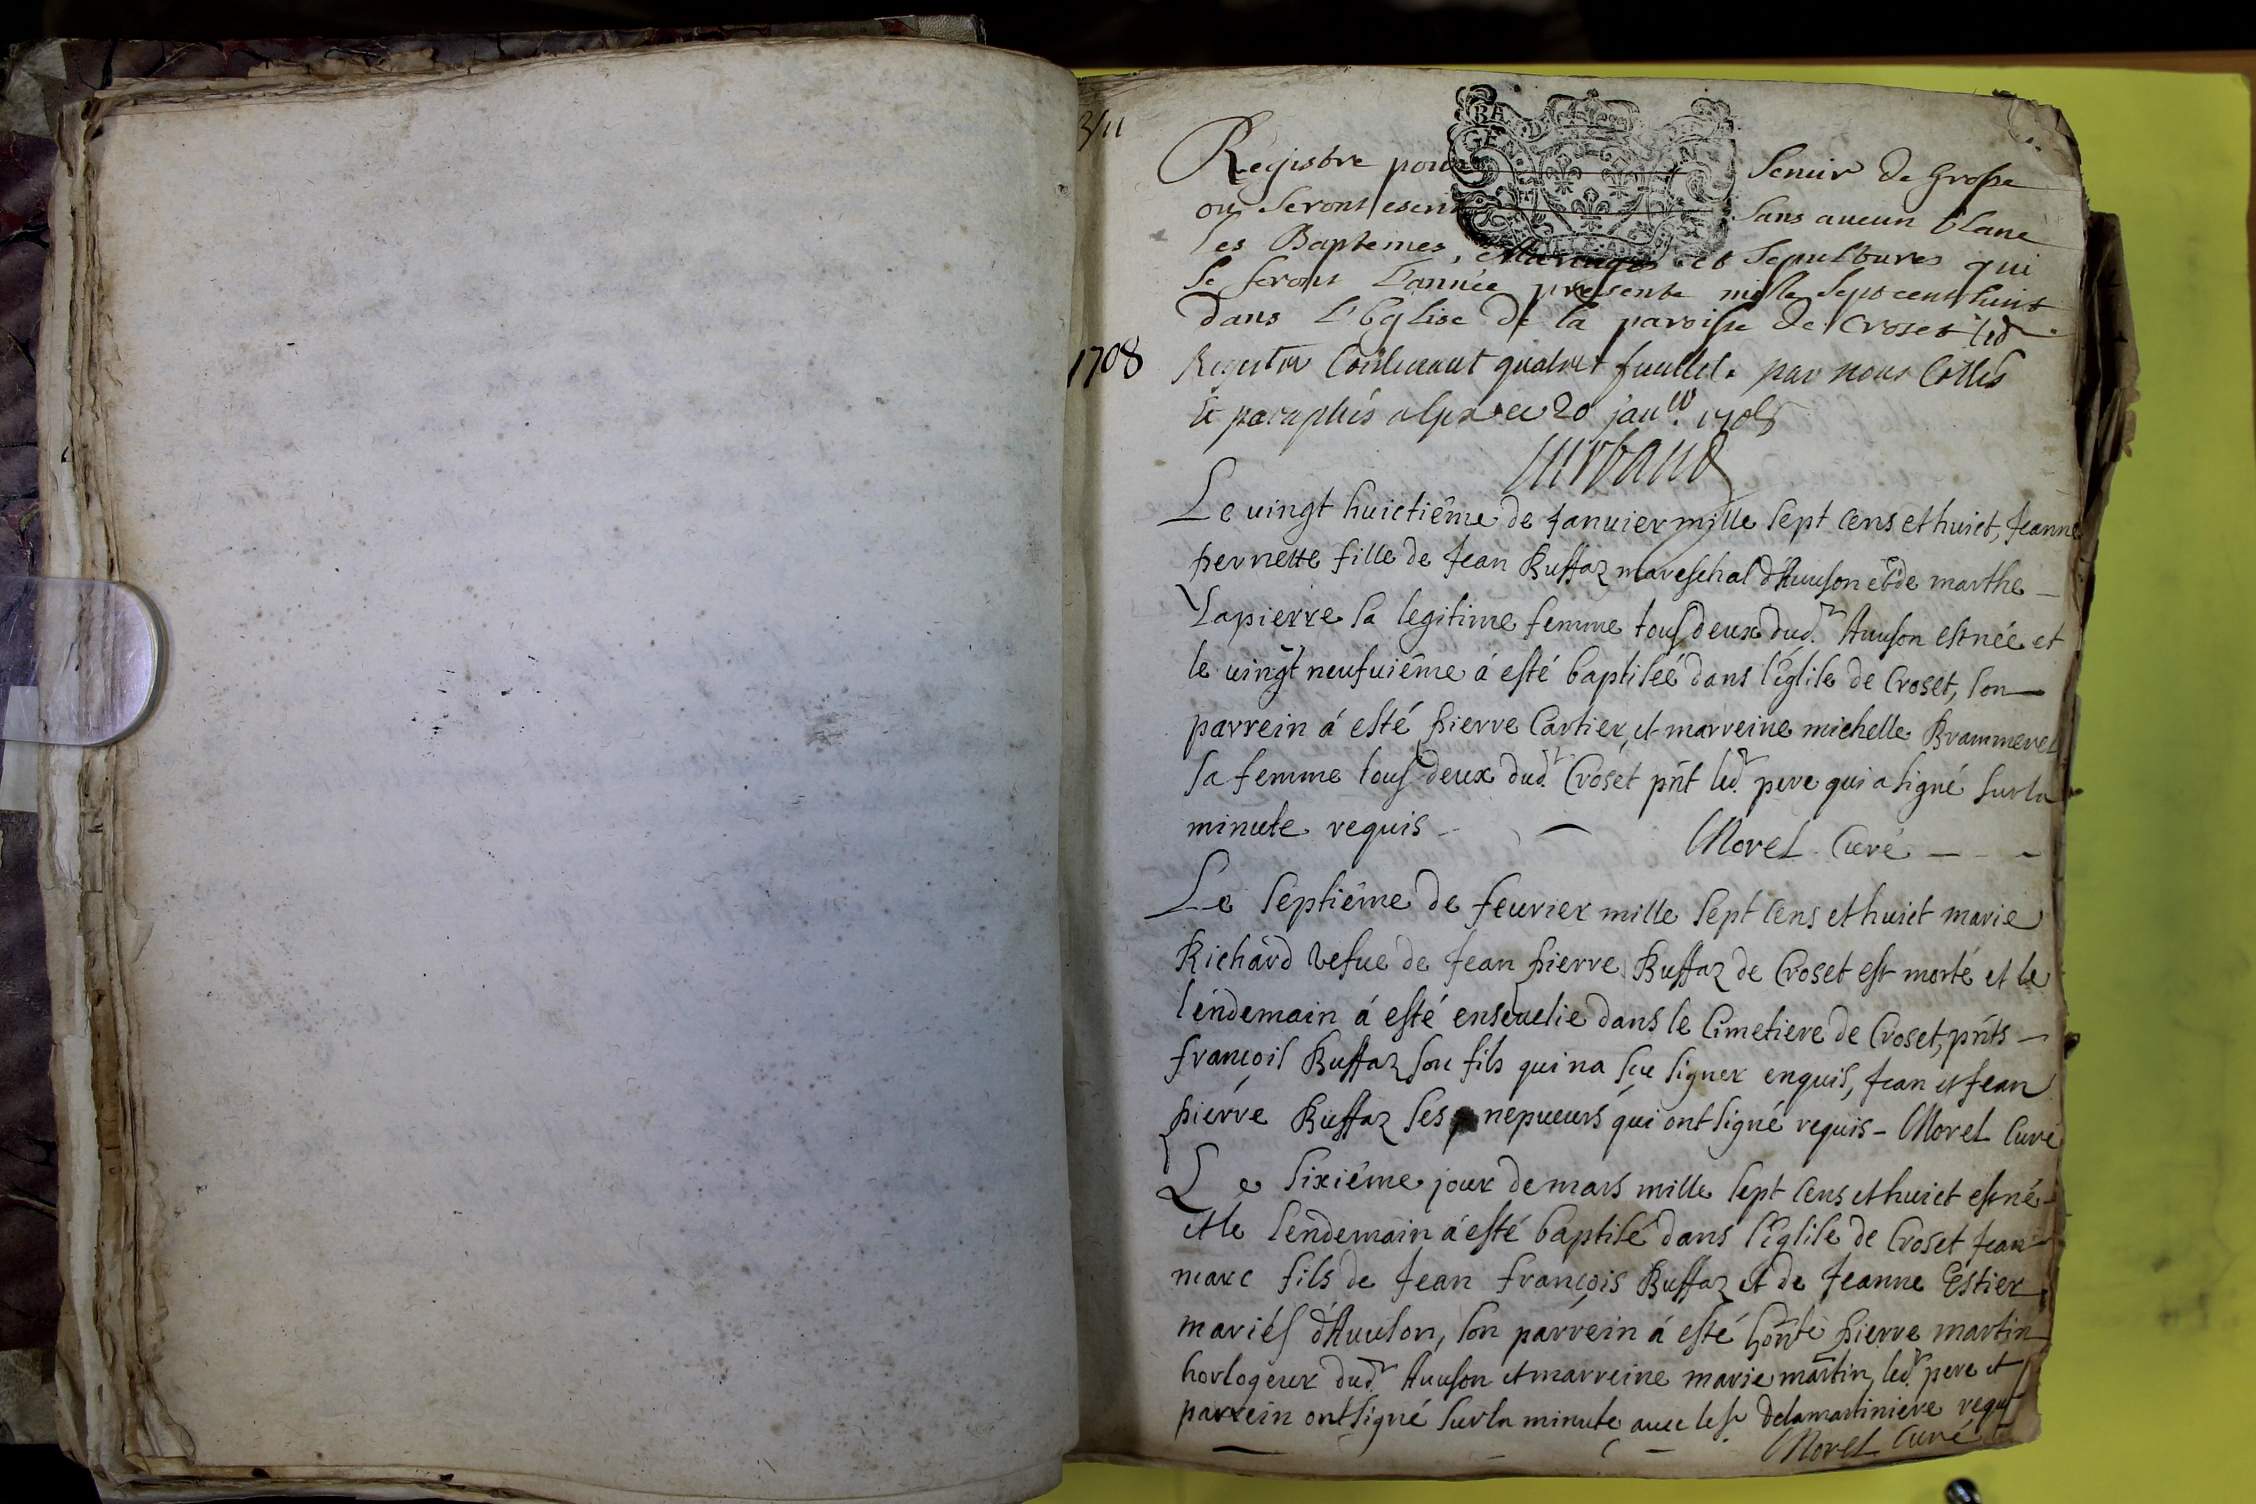 3/11
Registre pour servir de Grosse
ou seront escrit sans aucun blanc
les Baptemes, Mariages et Sepultures qui
se feront L'année presente mille sept cent huit
dans L'Eglise de la paroisse de Croset led
1708
Registre Contenant quatre feuillets par nous Cottés
Et paraphés a Gex ce 20 janer. 1708
Le uingt huictiême de Januier mille sept cens et huict, Jeanne
pernette fille de Jean Buffaz mareschal d'Auuson et de marthe
Lapierre sa legitime femme tous deux dud. Auuson est née et
le uingt neufuiême á esté baptisée dans l'Eglise de Croset, son
parrein á esté pierre Cartier, et marreine michelle Brammerel
sa femme tous deux dud. Croset pnt led. pere qui a signé sur la
minute requis Morel Curé
Le septiême de feurier mille sept cens et huict marie
Richard uefue de Jean pierre Buffaz de Croset est morté et le
lendemain á esté enseuelie dans le Cimetiere de Croset, pnts
françois Buffaz son fils qui na sçu signer enquis, Jean et Jean
pierre Buffaz ses nepueurs qui ont signé requis - Morel Curé
Le sixiême jour de mars mille sept cens et huict est né
et le lendemain á esté baptisé dans l'Eglise de Croset Jean
marc fils de Jean françois Buffaz et de Jeanne Estier
mariés d'Auuson, son parrein á esté honte pierre martin
horlogeur dud. Auuson et marreine marie martin, led. pere et
parrein ont signé sur la minute auec le sr. delamartiniere requis
Morel Curé